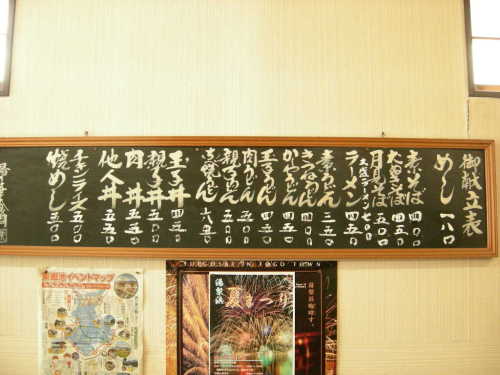 御献立表
めし 一八〇
素そば 四〇〇
大盛そば 四五〇
月見そば 五〇〇
大盛ラーメン 七〇〇
ラーメン 四五〇
素うどん 三五〇
きつねうどん 四〇〇
かやくうどん 四五〇
玉子うどん 四五〇
肉うどん 五〇〇
親子うどん 五〇〇
鍋焼うどん 六五〇
玉子丼 四五〇
親子丼 五五〇
肉丼 五五〇
他人丼 五五〇
チャンラーメン 五五〇
焼めし 五五〇
イベントマップ
TOGO TOWN
湯梨浜
夏まつり